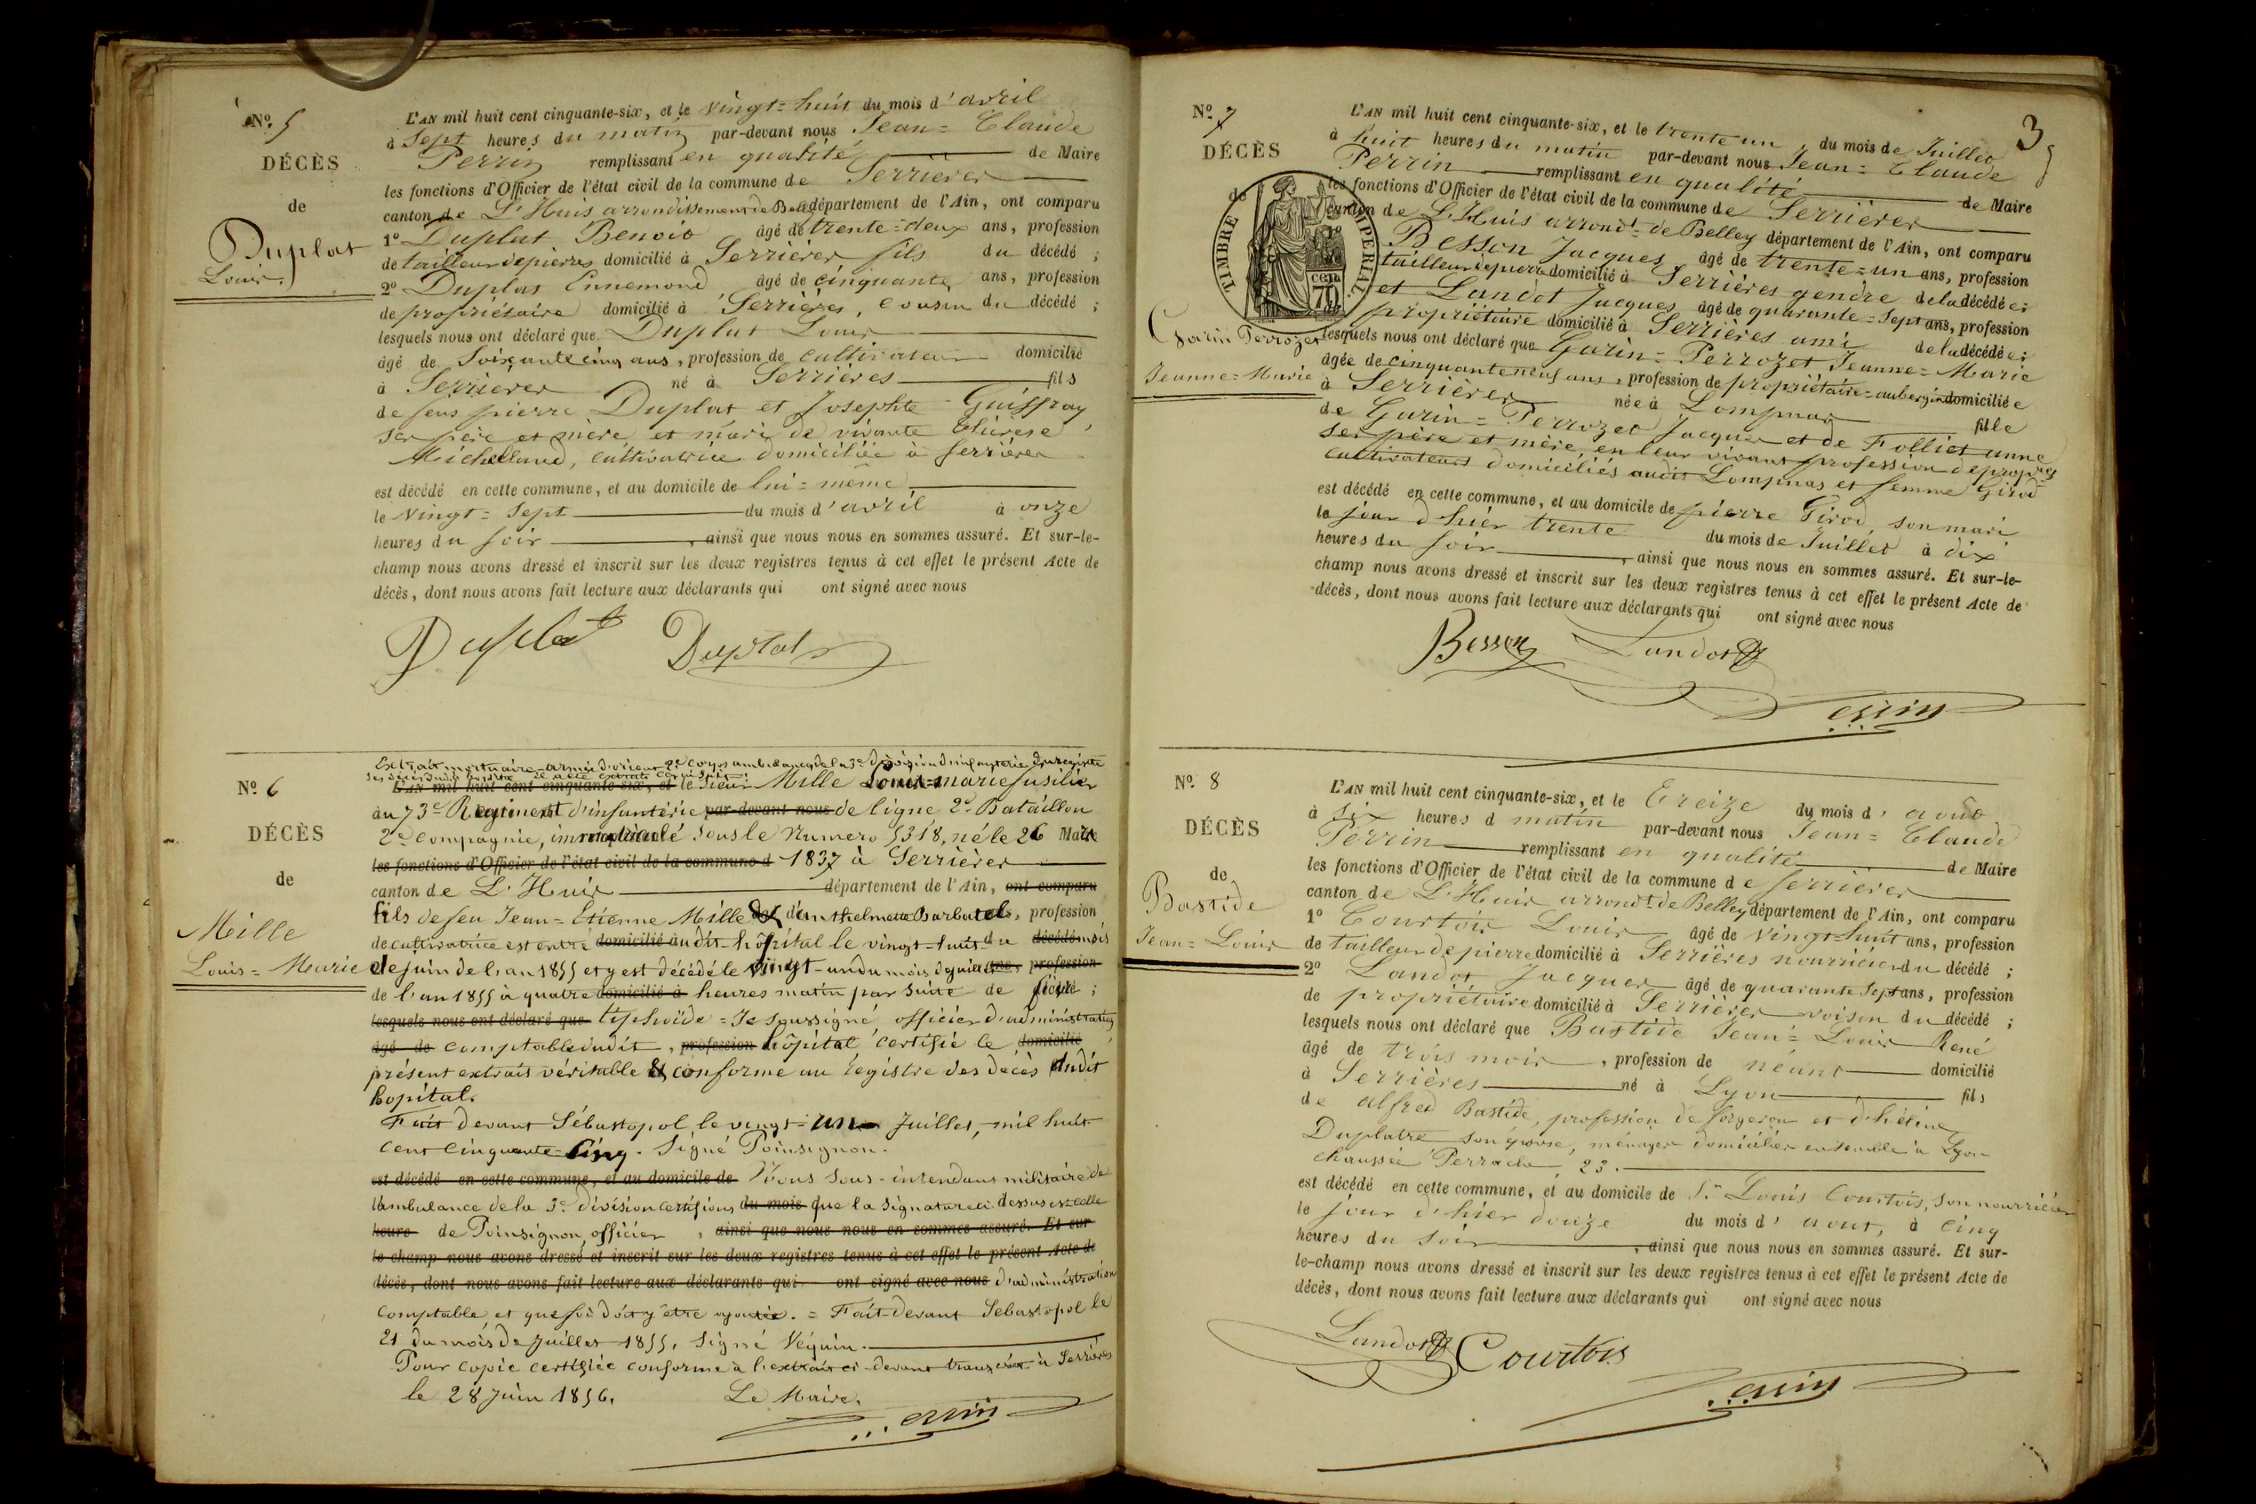 No. 5
DÉCÈS
de
Duplat
Louis.
L'AN mil huit cent cinquante-six, et le vingt-huit du mois d'avril
à Sept heures du matin par-devant nous Jean-Claude
Perrin remplissant en qualité de Maire
les fonctions d'Officier de l'état civil de la commune de Serrières
canton de L'Huis arrondissement de Belley département de l'Ain, ont comparu
1o Duplat Benoit âgé de trente-deux ans, profession
de tailleur de pierres domicilié à Serrières fils du décédé ;
2o Duplat Ennemond âgé de cinquante ans, profession
de propriétaire domicilié à Serrières, cousin du décédé ;
lesquels nous ont déclaré que Duplat Louis
âgé de Soixante cinq ans, profession de cultivateur domicilié
à Serrières né à Serrières fils
de feus pierre Duplat et Josephte Guiffray,
ses père et mère et mari de vivante thérèse
Michelland, cultivatrice domiciliée à Serrières
est décédé en cette commune, et au domicile de lui-même
le vingt-Sept du mois d'avril à onze
heures du soir, ainsi que nous nous en sommes assuré. Et sur-le-
champ nous avons dressé et inscrit sur les deux registres tenus à cet effet le présent Acte de
décès, dont nous avons fait lecture aux déclarants qui ont signé avec nous
Duplat Duplat
No. 6
DÉCÈS
de
Mille
Louis-Marie
Extrait mortuaire armée d'orient 2e Corps ambulance de la 3e division d'infanterie Du registre
des décès dudit hôpital a été extrait ce qui suit:
L'AN mil huit cent cinquante-six, et le Sieur Mille Louis-marie fusilier
au 73e Régiment d'infanterie par-devant nous de ligne 2e Bataillon
2e Compagnie, immatriculé sous le numero 5318, né le 26 Mars
les fonctions d'Officier de l'état civil de la commune d 1837 à Serrières
canton de L'Huis département de l'Ain, ont comparu
fils de feu Jean-Etienne Mille et d'anthelmette Barbatel, profession
de cultivatrice est entré domicilié audit hôpital le vingt-huit du décédé mois
de juin de l'an 1855 et y est décédé le vingt-un du mois de juillet ans, profession
de l'an 1855 à quatre domicilié à heures matin par suite de fièvre ;
lesquels nous ont déclaré que typhoïde = Je soussigné officier d'administration
âgé de comptable dudit, profession hôpital certifie le domicilié
présent extrait véritable et conforme au registre des décès dudit
hopital.
Fait devant Sébastopol le vingt-un Juillet, mil huit
cent cinquante-cinq. Signé Poinsignon.
est décédé en cette commune, et au domicile de Nous sous-intendant militaire de
l'ambulance de la 3e division certifions du mois que la signature ci dessus est celle
heure de Poinsignon, officier, ainsi que nous nous en sommes assuré. Et sur
le champ nous avons dressé et inscrit sur les deux registres tenus à cet effet le présent Acte de
décès, dont nous avons fait lecture aux déclarants qui ont signé avec nous d'administration
comptable et que foi doit y être ajoutée. = Fait devant Sébastopol le
21 du mois de Juillet 1855. Signé Véguin.
Pour copie certifiée conforme à l'extrait ci-devant transcrit à Serrières
le 28 Juin 1856. Le Maire.
Perrin
3
No. 7
DÉCÈS
de
TIMBRE IMPÉRIAL.
70 cen
Garin Perrozet
Jeanne-Marie
L'AN mil huit cent cinquante-six, et le trente un du mois de Juillet
à huit heures du matin par-devant nous Jean-Claude
Perrin remplissant en qualité de Maire
les fonctions d'Officier de l'état civil de la commune de Serrières
canton de L'Huis arrondt de Belley département de l'Ain, ont comparu
Besson Jacques âgé de trente-un ans, profession
tailleur de pierre domicilié à Serrières gendre de la décédée;
et Landot Jacques âgé de quarante-Sept ans, profession
propriétaire domicilié à Serrières ami de la décédée;
lesquels nous ont déclaré que Garin-Perrozet Jeanne-Marie
âgée de cinquante neuf ans, profession de propriétaire-aubergiste domiciliée
à Serrières née à Lompnas fille
de Garin-Perrozet Jacques et de Folliet anne
ses père et mère, en leur vivant profession de propres
cultivateurs domiciliés audit Lompnas et femme Girod
est décédé en cette commune, et au domicile de pierre Girod son mari
le jour d'hier trente du mois de Juillet à dix
heures du soir, ainsi que nous nous en sommes assuré. Et sur-le-
champ nous avons dressé et inscrit sur les deux registres tenus à cet effet le présent Acte de
décès, dont nous avons fait lecture aux déclarants qui ont signé avec nous
Besson Landot
Perrin
No. 8
DÉCÈS
de
Bastide
Jean-Louis
L'AN mil huit cent cinquante-six, et le treize du mois d'août
à six heures d matin par-devant nous Jean-Claude
Perrin remplissant en qualité de Maire
les fonctions d'Officier de l'état civil de la commune de Serrières
canton de L'Huis arrondt de Belley département de l'Ain, ont comparu
1o Courtois Louis âgé de vingt huit ans, profession
de tailleur de pierre domicilié à Serrières nourricier du décédé ;
2o Landot Jacques âgé de quarante Sept ans, profession
de propriétaire domicilié à Serrières voisin du décédé ;
lesquels nous ont déclaré que Bastide Jean-Louis René
âgé de trois mois, profession de néant domicilié
à Serrières né à Lyon fils
de alfred Bastide, profession de forgeron et d'héline
Duplatre son épouse, ménagère domiciliés ensemble à Lyon
chaussée Perrache, 23.
est décédé en cette commune, et au domicile de Sr Louis Courtois, son nourricier
le jour d'hier douze du mois d'aout, à cinq
heures du soir, ainsi que nous nous en sommes assuré. Et sur-
le-champ nous avons dressé et inscrit sur les deux registres tenus à cet effet le présent Acte de
décès, dont nous avons fait lecture aux déclarants qui ont signé avec nous
Landot Courtois
Perrin